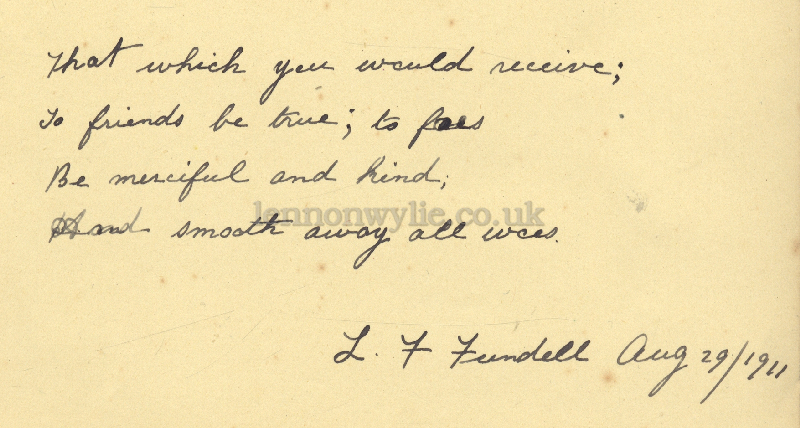 That which you would receive;
To friends be true; to foes
Be merciful and kind;
And smooth away all woes.
lennonwylie.co.uk
L. F Fundell Aug 29/1911